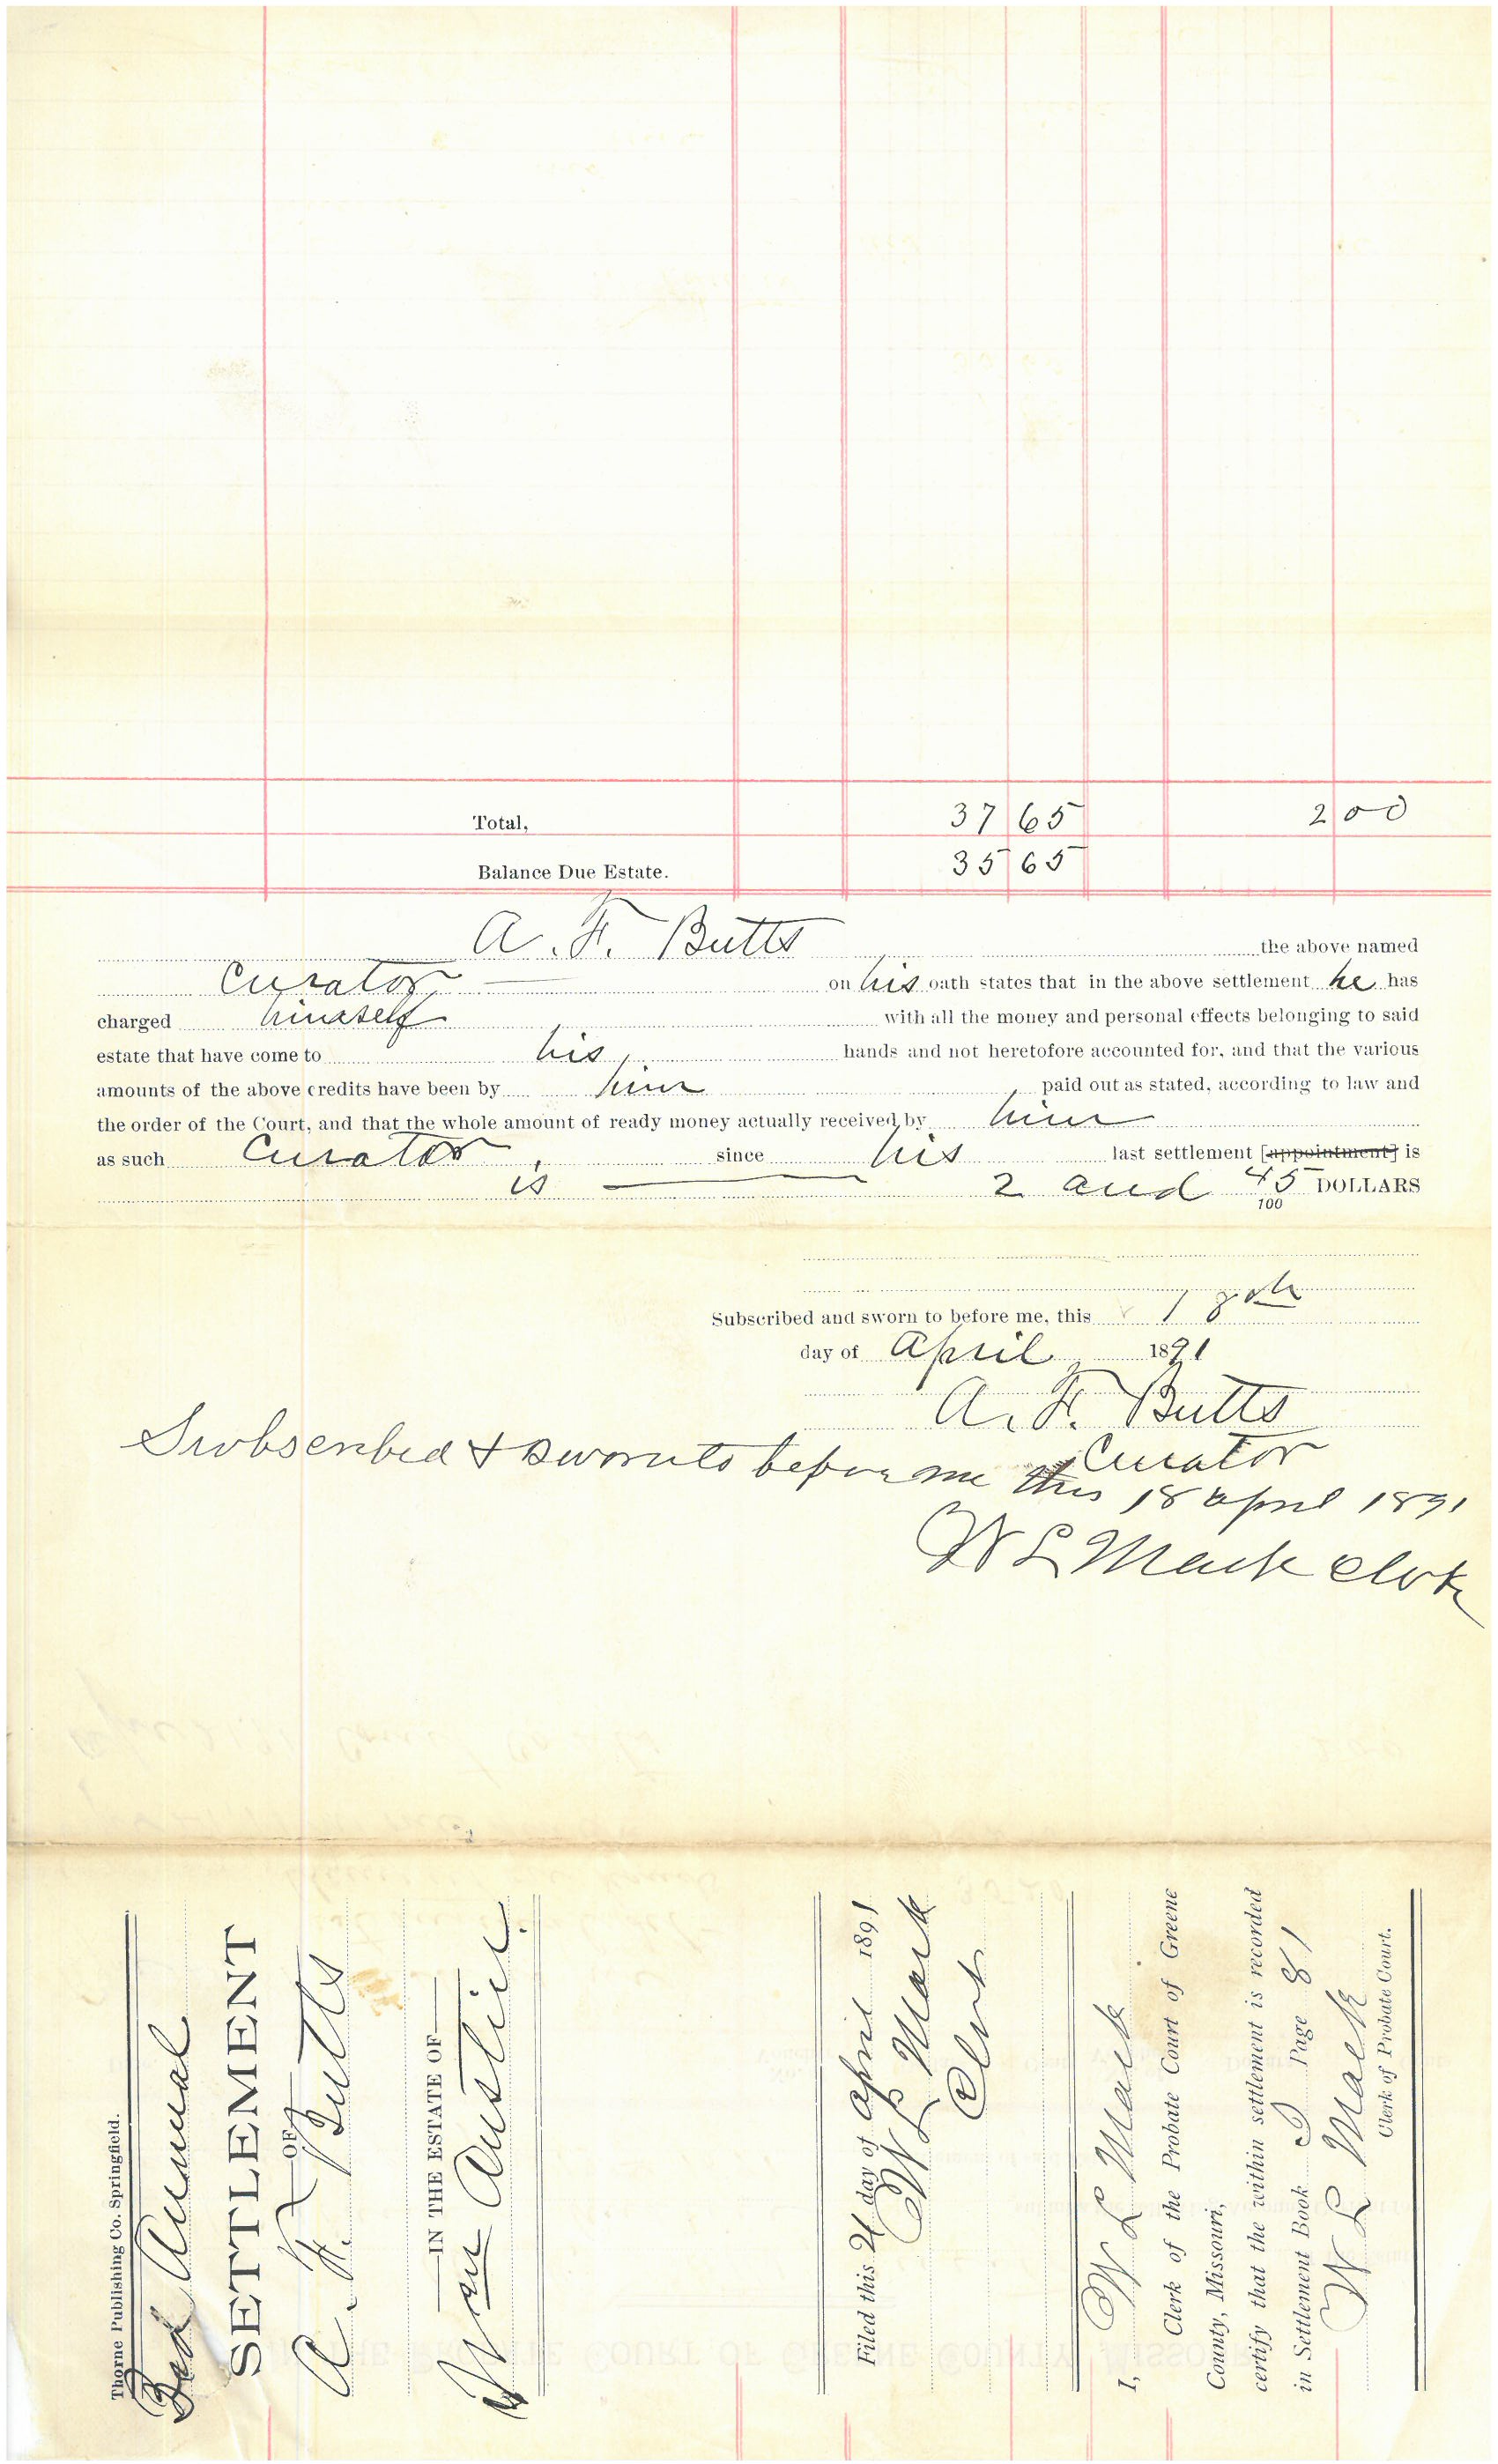 Total, 37 65 2 00
Balance Due Estate. 35 65
A. F. Butts the above named
Curator on his oath states that in the above settlement he has
charged himself with all the money and personal effects belonging to said
estate that have come to his hands and not heretofore accounted for, and that the various
amounts of the above credits have been by him paid out as stated, according to law and
the order of the Court, and that the whole amount of ready money actually received by him
as such Curator, since his last settlement [appointment] is
is 2 and 45/100 DOLLARS
Subscribed and sworn to before me, this 18th
day of April 1891
A. F. Butts
Curator
Subscribed & sworn to before me this 18 april 1891
W L Mack Clerk
Thorne Publishing Co. Springfield.
Annual
SETTLEMENT
OF
A. F. Butts
IN THE ESTATE OF
Wm Austin.
Filed this 21 day of april 1891
W L Mack
Clerk
I, W L Mack
Clerk of the Probate Court of Greene
County, Missouri,
certify that the within settlement is recorded
in Settlement Book Page 81
W L Mack
Clerk of Probate Court.